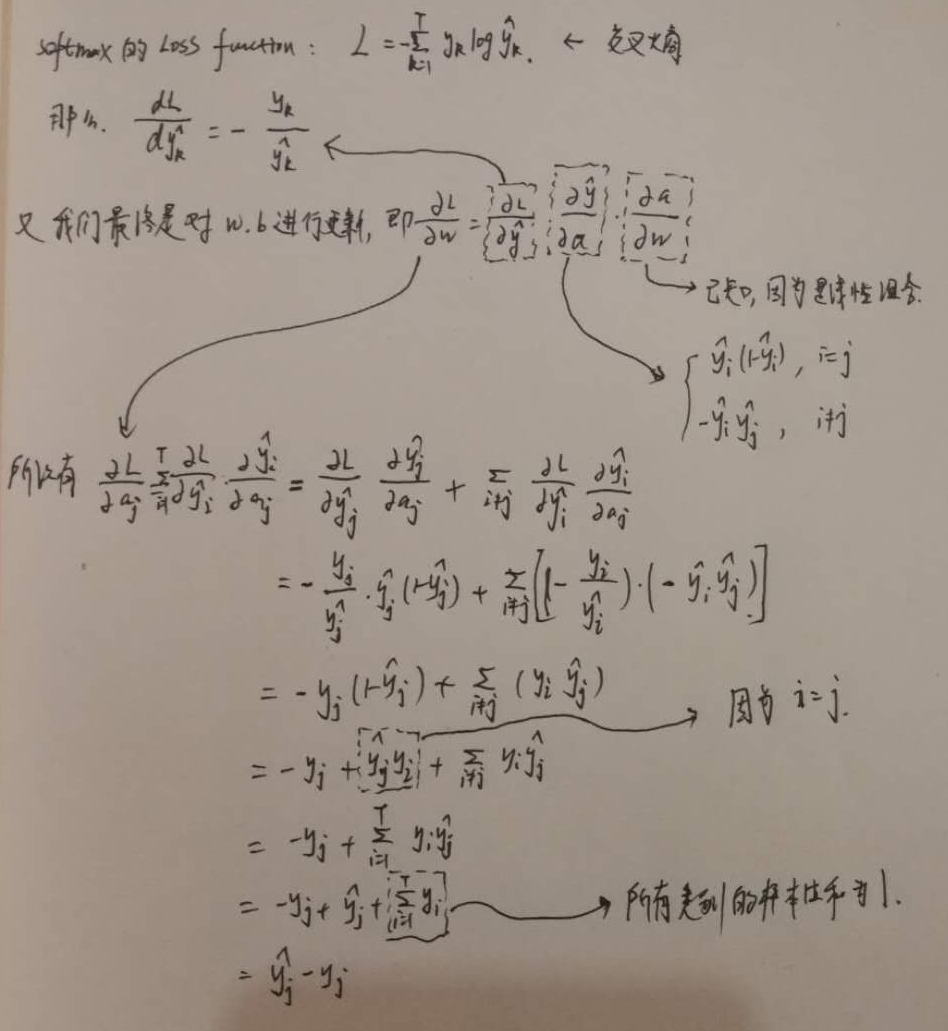 softmax 的 Loss function : L = -∑_{k=1}^{T} y_k log ŷ_k. ← 交叉熵
那么. dL/dŷ_k = - y_k/ŷ_k
又 我们最终是对 w.b 进行更新, 即 ∂L/∂w = ∂L/∂ŷ · ∂ŷ/∂a · ∂a/∂w
→ 已知, 因为是线性组合.
{ ŷ_i(1-ŷ_i), i=j
-ŷ_i ŷ_j, i≠j
所以有 ∂L/∂a_j ∑_{i=1}^{T} ∂L/∂ŷ_i · ∂ŷ_i/∂a_j = ∂L/∂ŷ_j ∂ŷ_j/∂a_j + ∑_{i≠j} ∂L/∂ŷ_i ∂ŷ_i/∂a_j
= - y_j/ŷ_j · ŷ_j(1-ŷ_j) + ∑_{i≠j} [(- y_i/ŷ_i) · (- ŷ_i ŷ_j)]
= - y_j(1-ŷ_j) + ∑_{i≠j} (y_i ŷ_j)
→ 因为 i=j.
= - y_j + ŷ_j y_i + ∑_{i≠j} y_i ŷ_j
= -y_j + ∑_{i=1}^{T} y_i ŷ_j
= -y_j + ŷ_j + ∑_{i=1}^{T} y_i → 所有类别的样本性和为1.
= ŷ_j - y_j